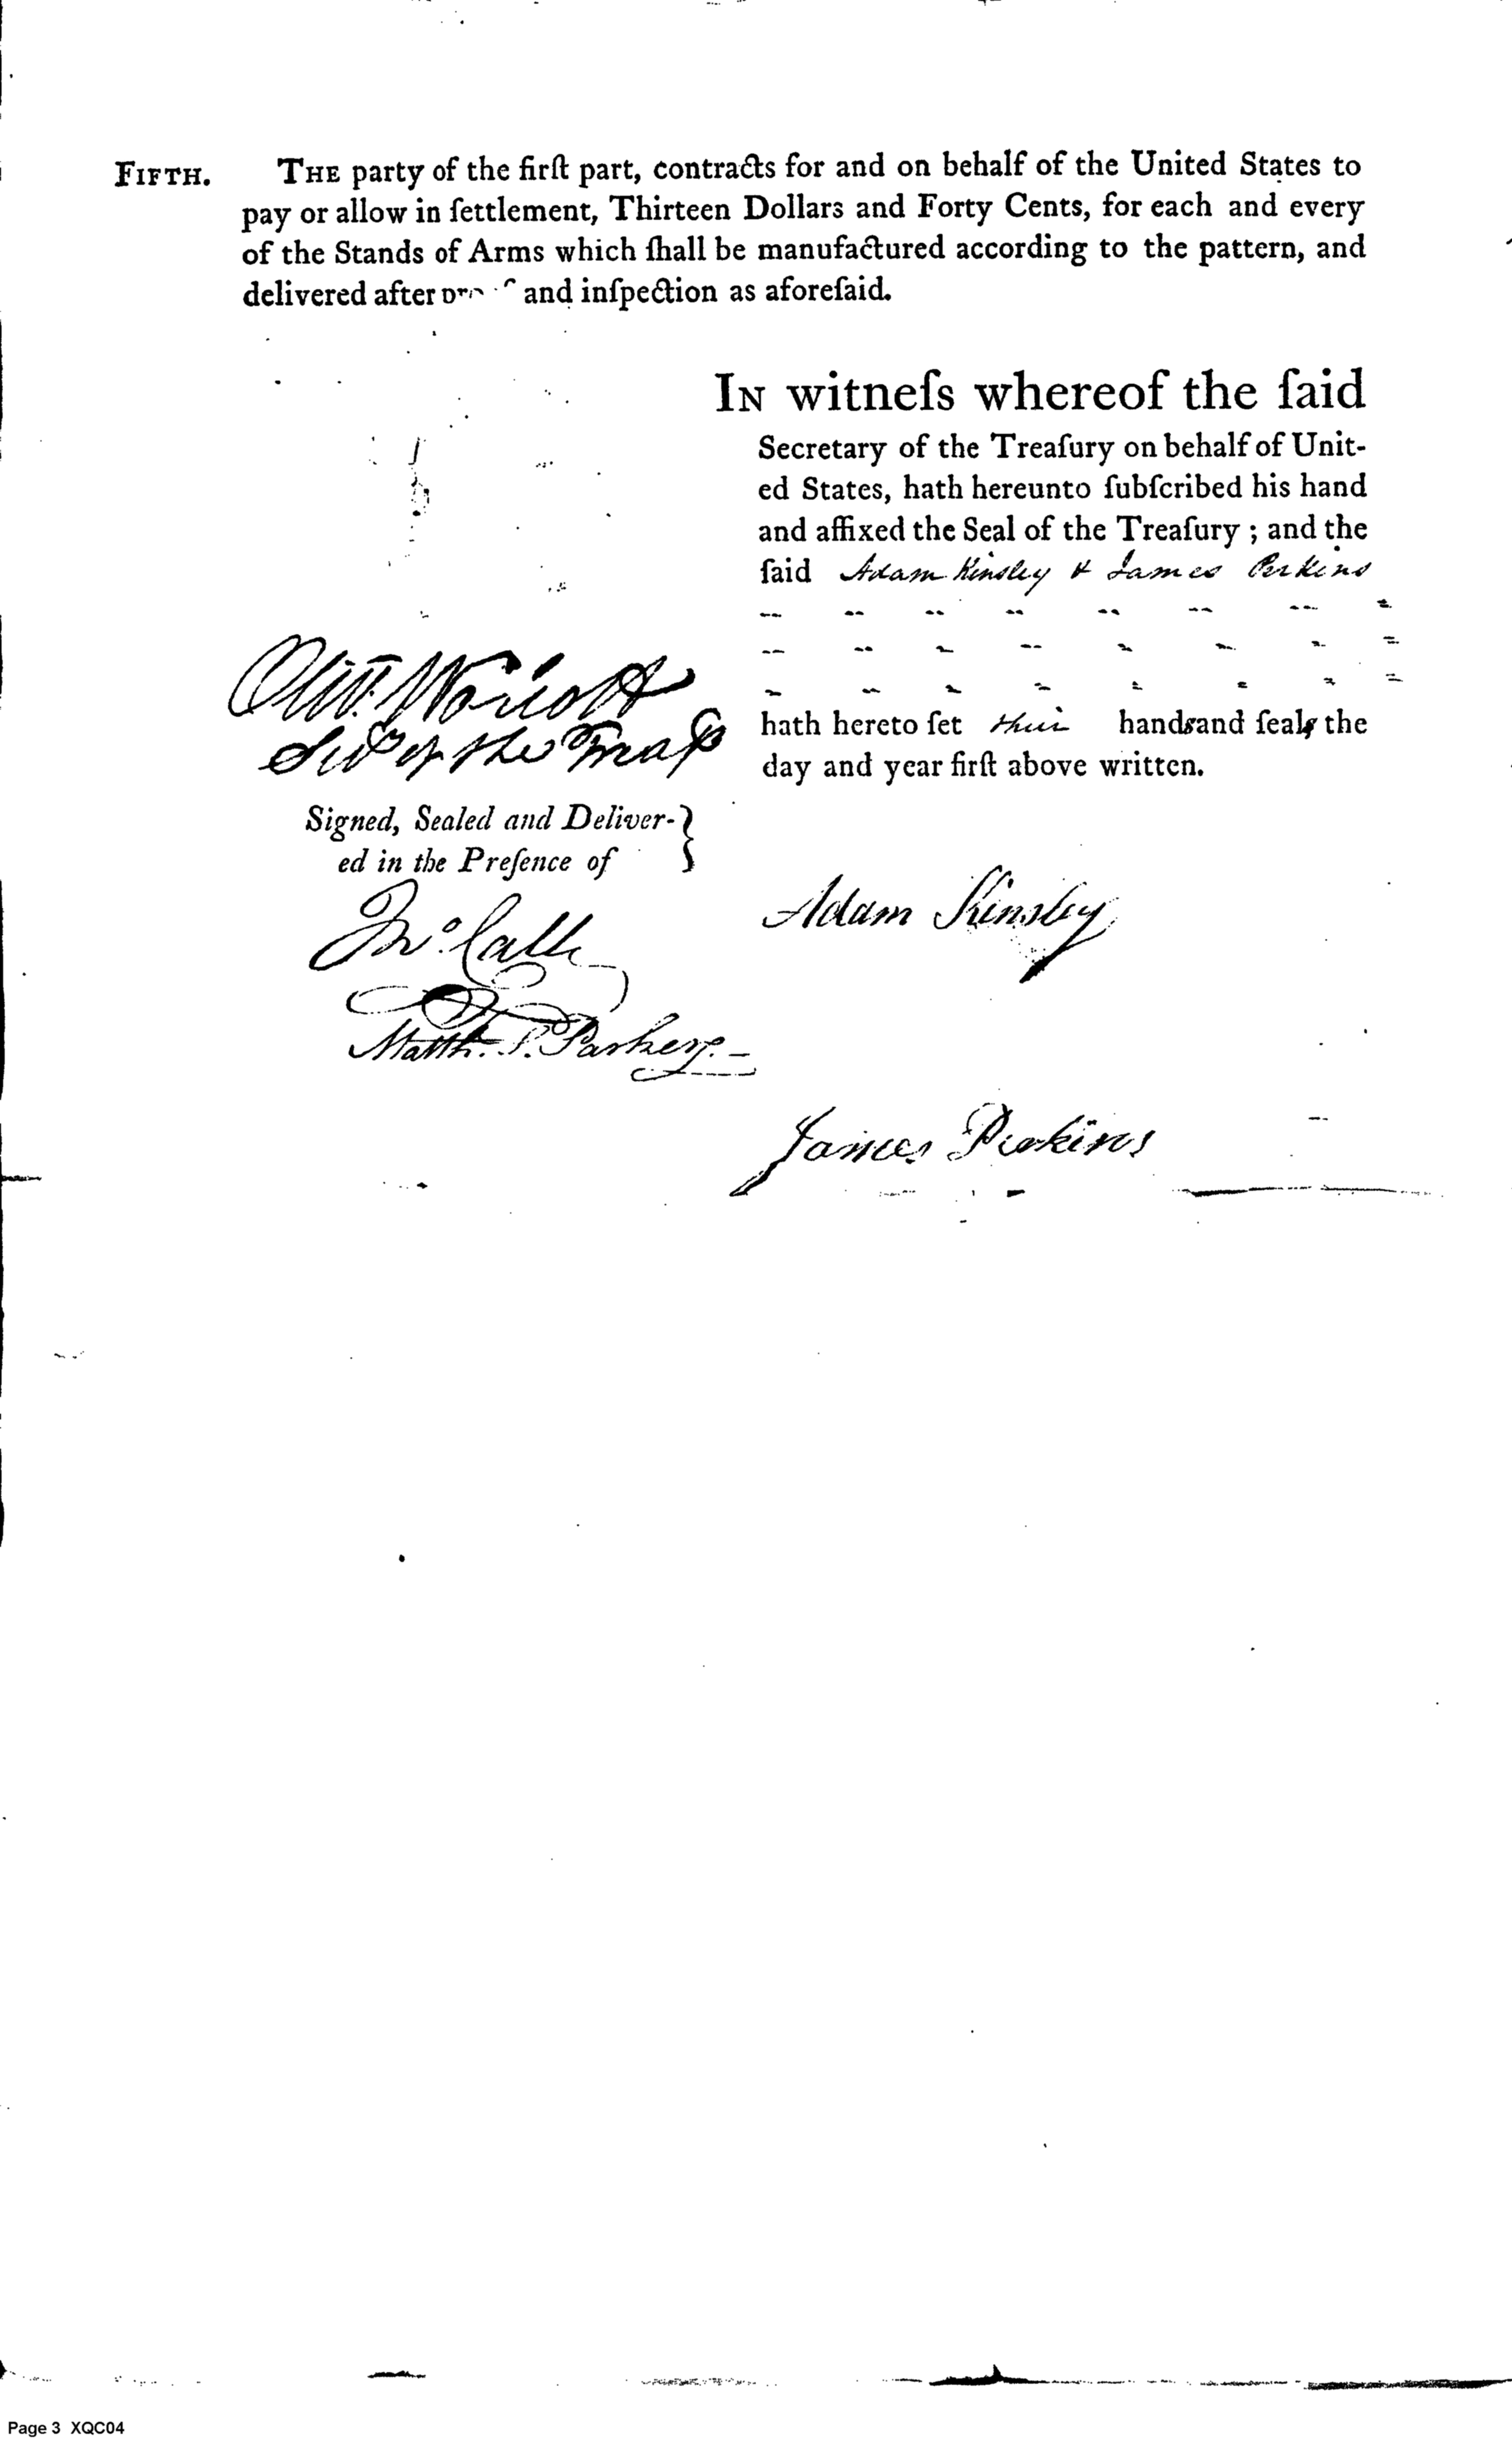 FIFTH. THE party of the firſt part, contracts for and on behalf of the United States to
pay or allow in ſettlement, Thirteen Dollars and Forty Cents, for each and every
of the Stands of Arms which ſhall be manufactured according to the pattern, and
delivered after and inſpection as aforeſaid.
IN witneſs whereof the ſaid
Secretary of the Treaſury on behalf of Unit-
ed States, hath hereunto ſubſcribed his hand
and affixed the Seal of the Treaſury ; and the
ſaid Adam Kinsley & James Perkins
hath hereto ſet their hands and ſeals the
day and year firſt above written.
Oliv. Wolcott
of the Treas
Signed, Sealed and Deliver-}
ed in the Preſence of
Jno. Call
Matth. Parker
Adam Kinsley
James Perkins
Page 3 XQC04